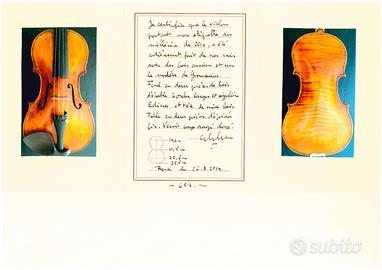 Je certifie que le violon
portant mon étiquette au
millésime de 2010, a été
entièrement fait de mes mains
avec des bois anciens et sur
le modèle de Guarnerius.
Fond en deux pièces de bois
d'érable à ondes larges et
Eclisses et tête de même bois
Table en deux pièces d'épicéa
Vernis rouge orangé
11,5 cm
35,5 cm
le 26.8.2014
- 604 -
subito